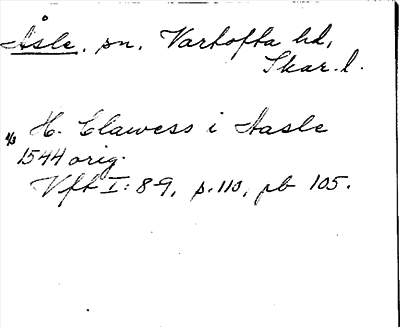 Åsle. sn. Vartofta hd,
Skar. l.
H. Clawess i Aasle
4/3 1544 orig.
Vft I: 8-9, s. 110, pb 105.